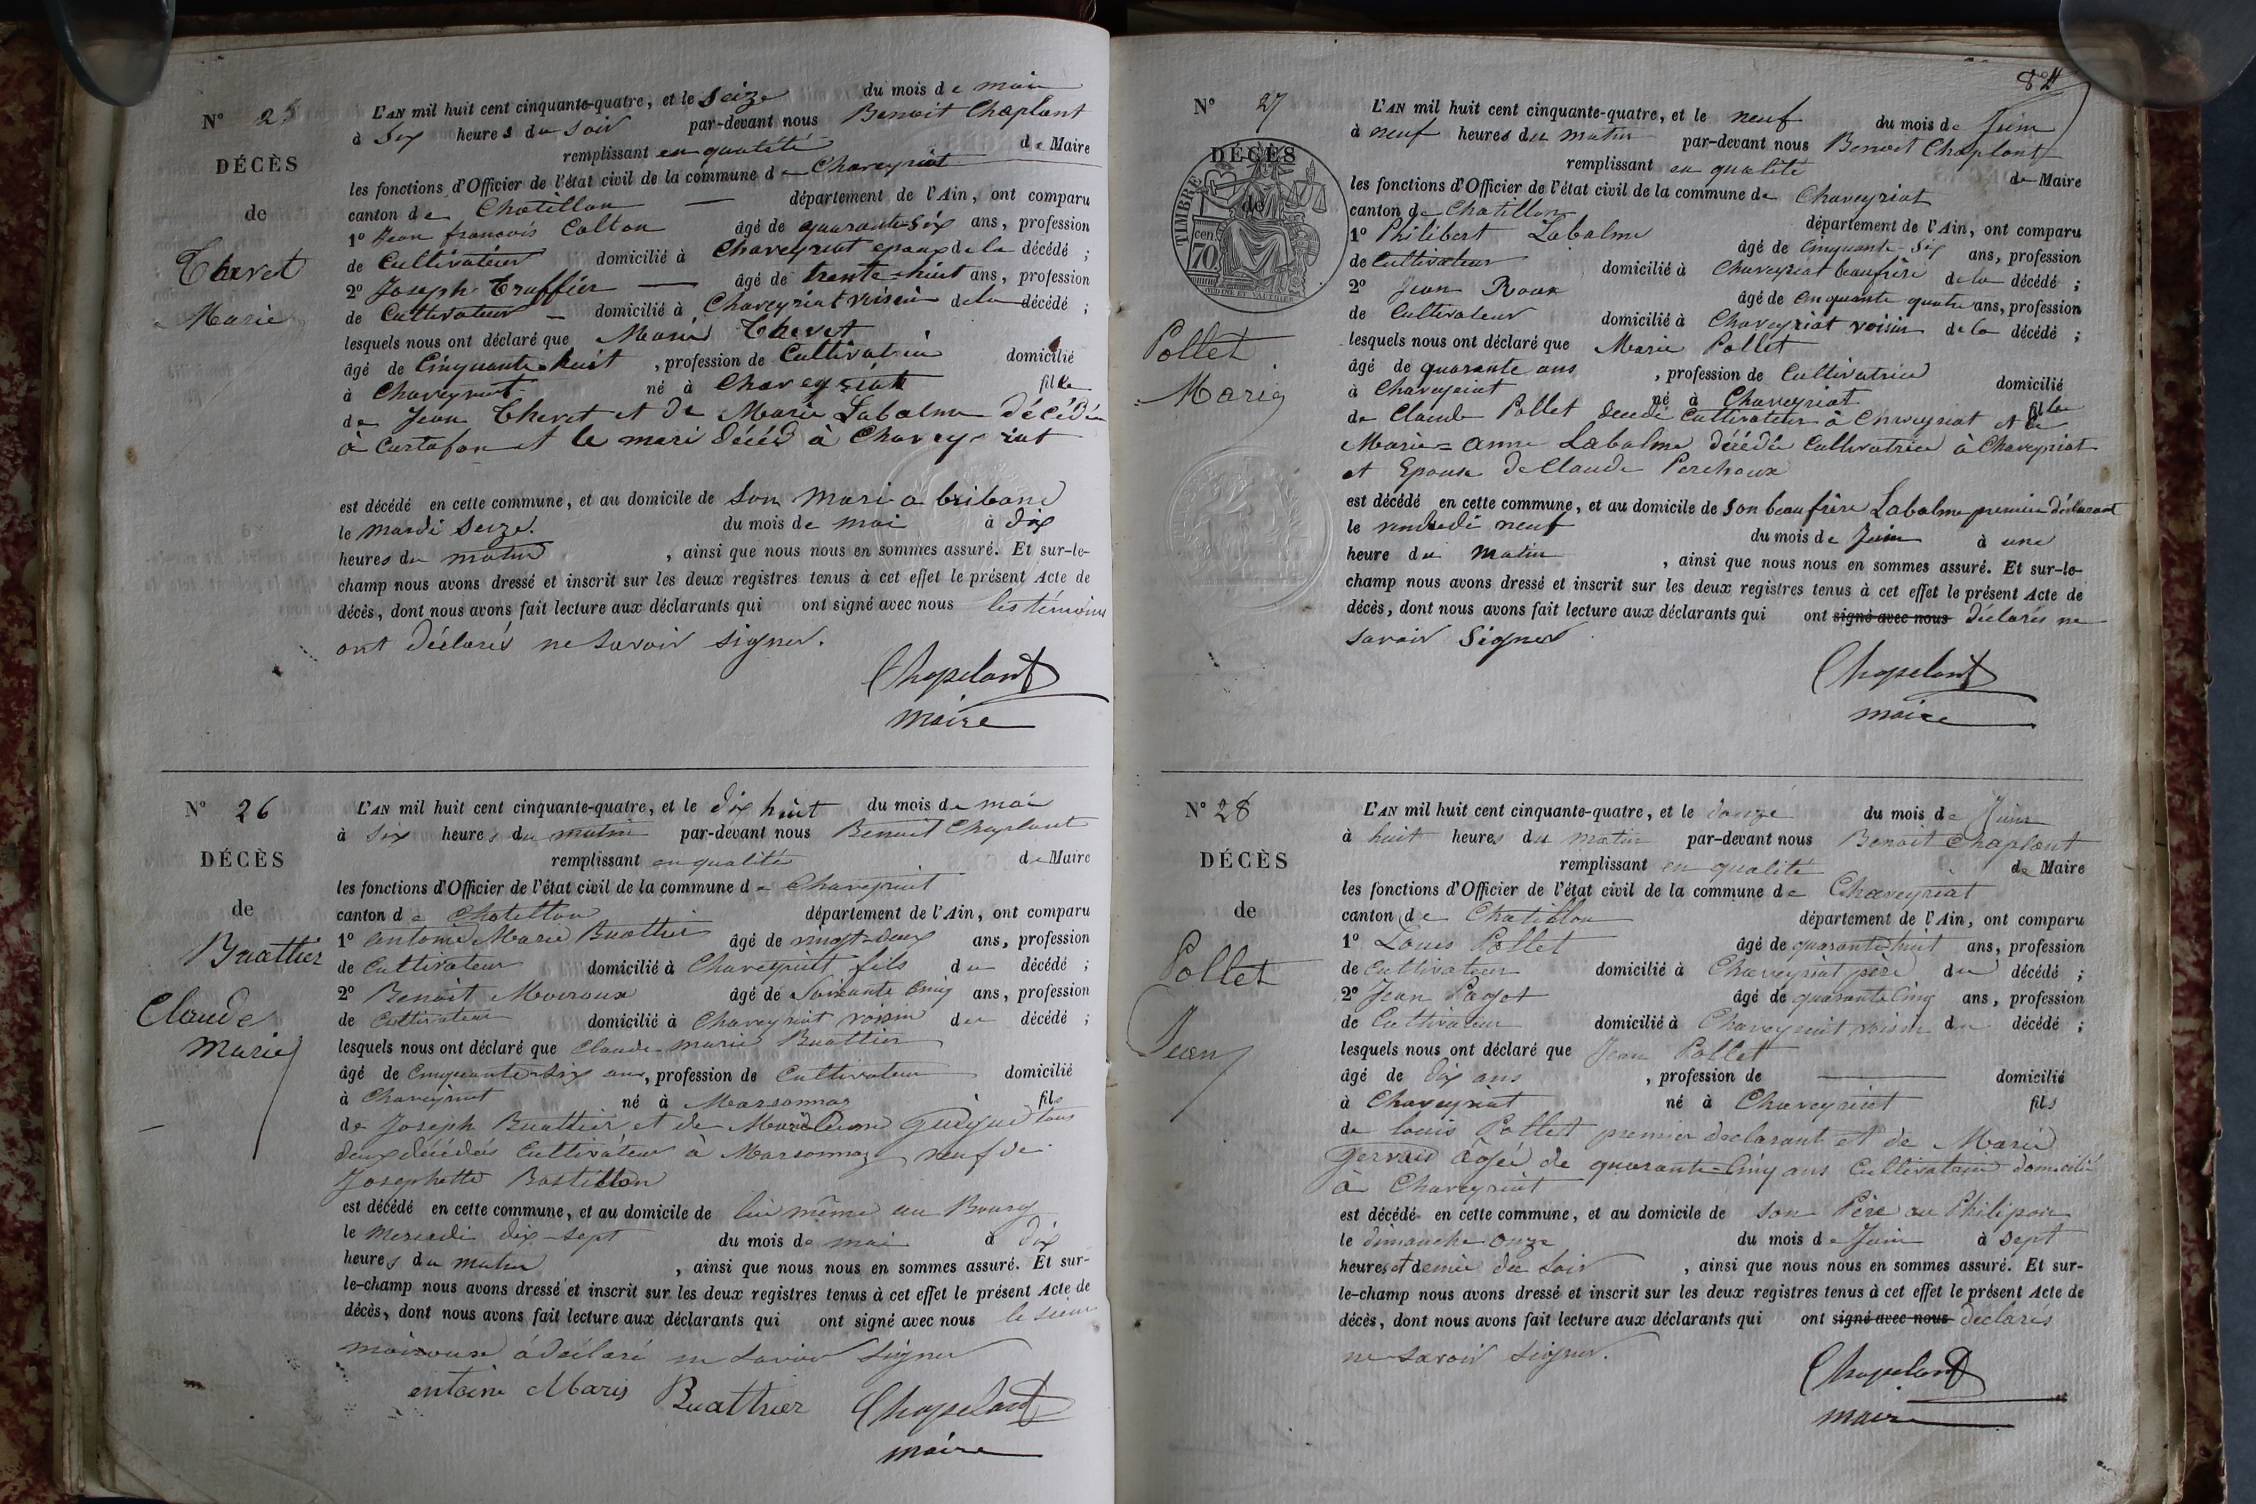 N° 25
DÉCÈS
de
Thevet
Marie
L'AN mil huit cent cinquante-quatre, et le seize du mois de mai
à Six heures du soir par-devant nous Benoit Chaplant
remplissant en qualité de Maire
les fonctions d'Officier de l'état civil de la commune de Chaveyriat
canton de Chatillon département de l'Ain, ont comparu
1° Jean françois Colton âgé de quarante-six ans, profession
de Cultivateur domicilié à Chaveyriat epoux de la décédé ;
2° Joseph Truffier âgé de trente-huit ans, profession
de Cultivateur domicilié à Chaveyriat voisin de la décédé ;
lesquels nous ont déclaré que Marie Thevet
âgé de Cinquante-huit , profession de Cultivatrice domicilié
à Chaveyriat né à Chaveyriat fille
de Jean Thevet et de Marie Labalme décédée
à Curtafon et le mari décédé à Chaveyriat
est décédé en cette commune, et au domicile de son mari a briband
le mardi seize du mois de mai à dix
heures du matin , ainsi que nous nous en sommes assuré. Et sur-le-
champ nous avons dressé et inscrit sur les deux registres tenus à cet effet le présent Acte de
décès, dont nous avons fait lecture aux déclarants qui ont signé avec nous les témoins
ont déclarés ne savoir signer.
Chapelant
maire
N° 26
DÉCÈS
de
Buathier
Claude
marie
L'AN mil huit cent cinquante-quatre, et le dix huit du mois de mai
à six heures du matin par-devant nous Benoit Chaplant
remplissant en qualité de Maire
les fonctions d'Officier de l'état civil de la commune de Chaveyriat
canton de Chatillon département de l'Ain, ont comparu
1° antoine Marie Buathier âgé de vingt-deux ans, profession
de Cultivateur domicilié à Chaveyriat fils du décédé ;
2° Benoit Moiroux âgé de soixante cinq ans, profession
de Cultivateur domicilié à Chaveyriat voisin du décédé ;
lesquels nous ont déclaré que Claude marie Buathier
âgé de Cinquante-six ans, profession de Cultivateur domicilié
à Chaveyriat né à Marsonnas fils
de Joseph Buathier et de Guigue tous
deux décédés Cultivateur à Marsonnas veuf de
Josephette Bastillon
est décédé en cette commune, et au domicile de lui même au Bourg
le Mercredi dix-sept du mois de mai à dix
heures du matin , ainsi que nous nous en sommes assuré. Et sur-
le-champ nous avons dressé et inscrit sur les deux registres tenus à cet effet le présent Acte de
décès, dont nous avons fait lecture aux déclarants qui ont signé avec nous le sieur
moiroux à déclaré ne savoir signer
antoine Marie Buathier Chapelant
maire
84
N° 27
DÉCÈS
de
TIMBRE
70 cen.
Pollet
Marie
L'AN mil huit cent cinquante-quatre, et le neuf du mois de Juin
à neuf heures du matin par-devant nous Benoit Chaplant
remplissant en qualité de Maire
les fonctions d'Officier de l'état civil de la commune de Chaveyriat
canton de Chatillon département de l'Ain, ont comparu
1° Philibert Labalme âgé de Cinquante-six ans, profession
de Cultivateur domicilié à Chaveyriat beaufrère de la décédé ;
2° Jean Roux âgé de cinquante quatre ans, profession
de Cultivateur domicilié à Chaveyriat voisin de la décédé ;
lesquels nous ont déclaré que Marie Pollet
âgé de quarante ans , profession de Cultivatrice domicilié
à Chaveyriat né à Chaveyriat fille
de Claude Pollet décédé Cultivateur à Chaveyriat et de
Marie-anne Labalme décédée Cultivatrice à Chaveyriat
et Epouse de Claude Perchoux
est décédé en cette commune, et au domicile de son beaufrère Labalme premier déclarant
le vendredi neuf du mois de Juin à une
heure du matin , ainsi que nous nous en sommes assuré. Et sur-le-
champ nous avons dressé et inscrit sur les deux registres tenus à cet effet le présent Acte de
décès, dont nous avons fait lecture aux déclarants qui ont signé avec nous déclarés ne
savoir signer
Chapelant
maire
N° 28
DÉCÈS
de
Pollet
Jean
L'AN mil huit cent cinquante-quatre, et le douze du mois de Juin
à huit heures du matin par-devant nous Benoit Chaplant
remplissant en qualité de Maire
les fonctions d'Officier de l'état civil de la commune de Chaveyriat
canton de Chatillon département de l'Ain, ont comparu
1° Louis Pollet âgé de quarante-huit ans, profession
de Cultivateur domicilié à Chaveyriat père du décédé ;
2° Jean Pagot âgé de quarante Cinq ans, profession
de Cultivateur domicilié à Chaveyriat voisin du décédé ;
lesquels nous ont déclaré que Jean Pollet
âgé de dix ans , profession de domicilié
à Chaveyriat né à Chaveyriat fils
de louis Pollet premier déclarant et de Marie
Gervais âgée de quarante-Cinq ans Cultivatrice domicilié
à Chaveyriat
est décédé en cette commune, et au domicile de son Père au Philipon
le dimanche onze du mois de Juin à sept
heures et demie du soir , ainsi que nous nous en sommes assuré. Et sur-
le-champ nous avons dressé et inscrit sur les deux registres tenus à cet effet le présent Acte de
décès, dont nous avons fait lecture aux déclarants qui ont signé avec nous déclarés
ne savoir signer.
Chapelant
maire